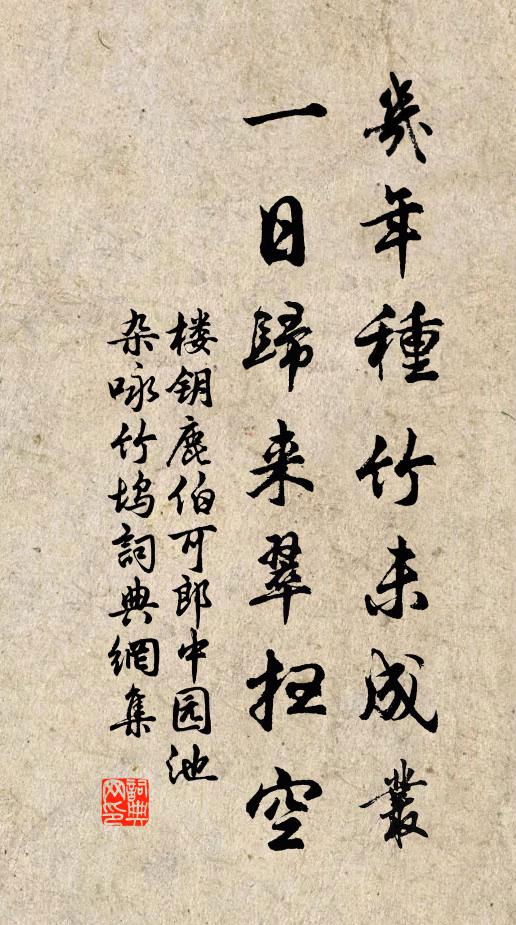 幾年種竹未成叢
一日歸来翠扫空
楼钥鹿伯可郎中园池
杂咏竹坞詞典網集
詞典网印